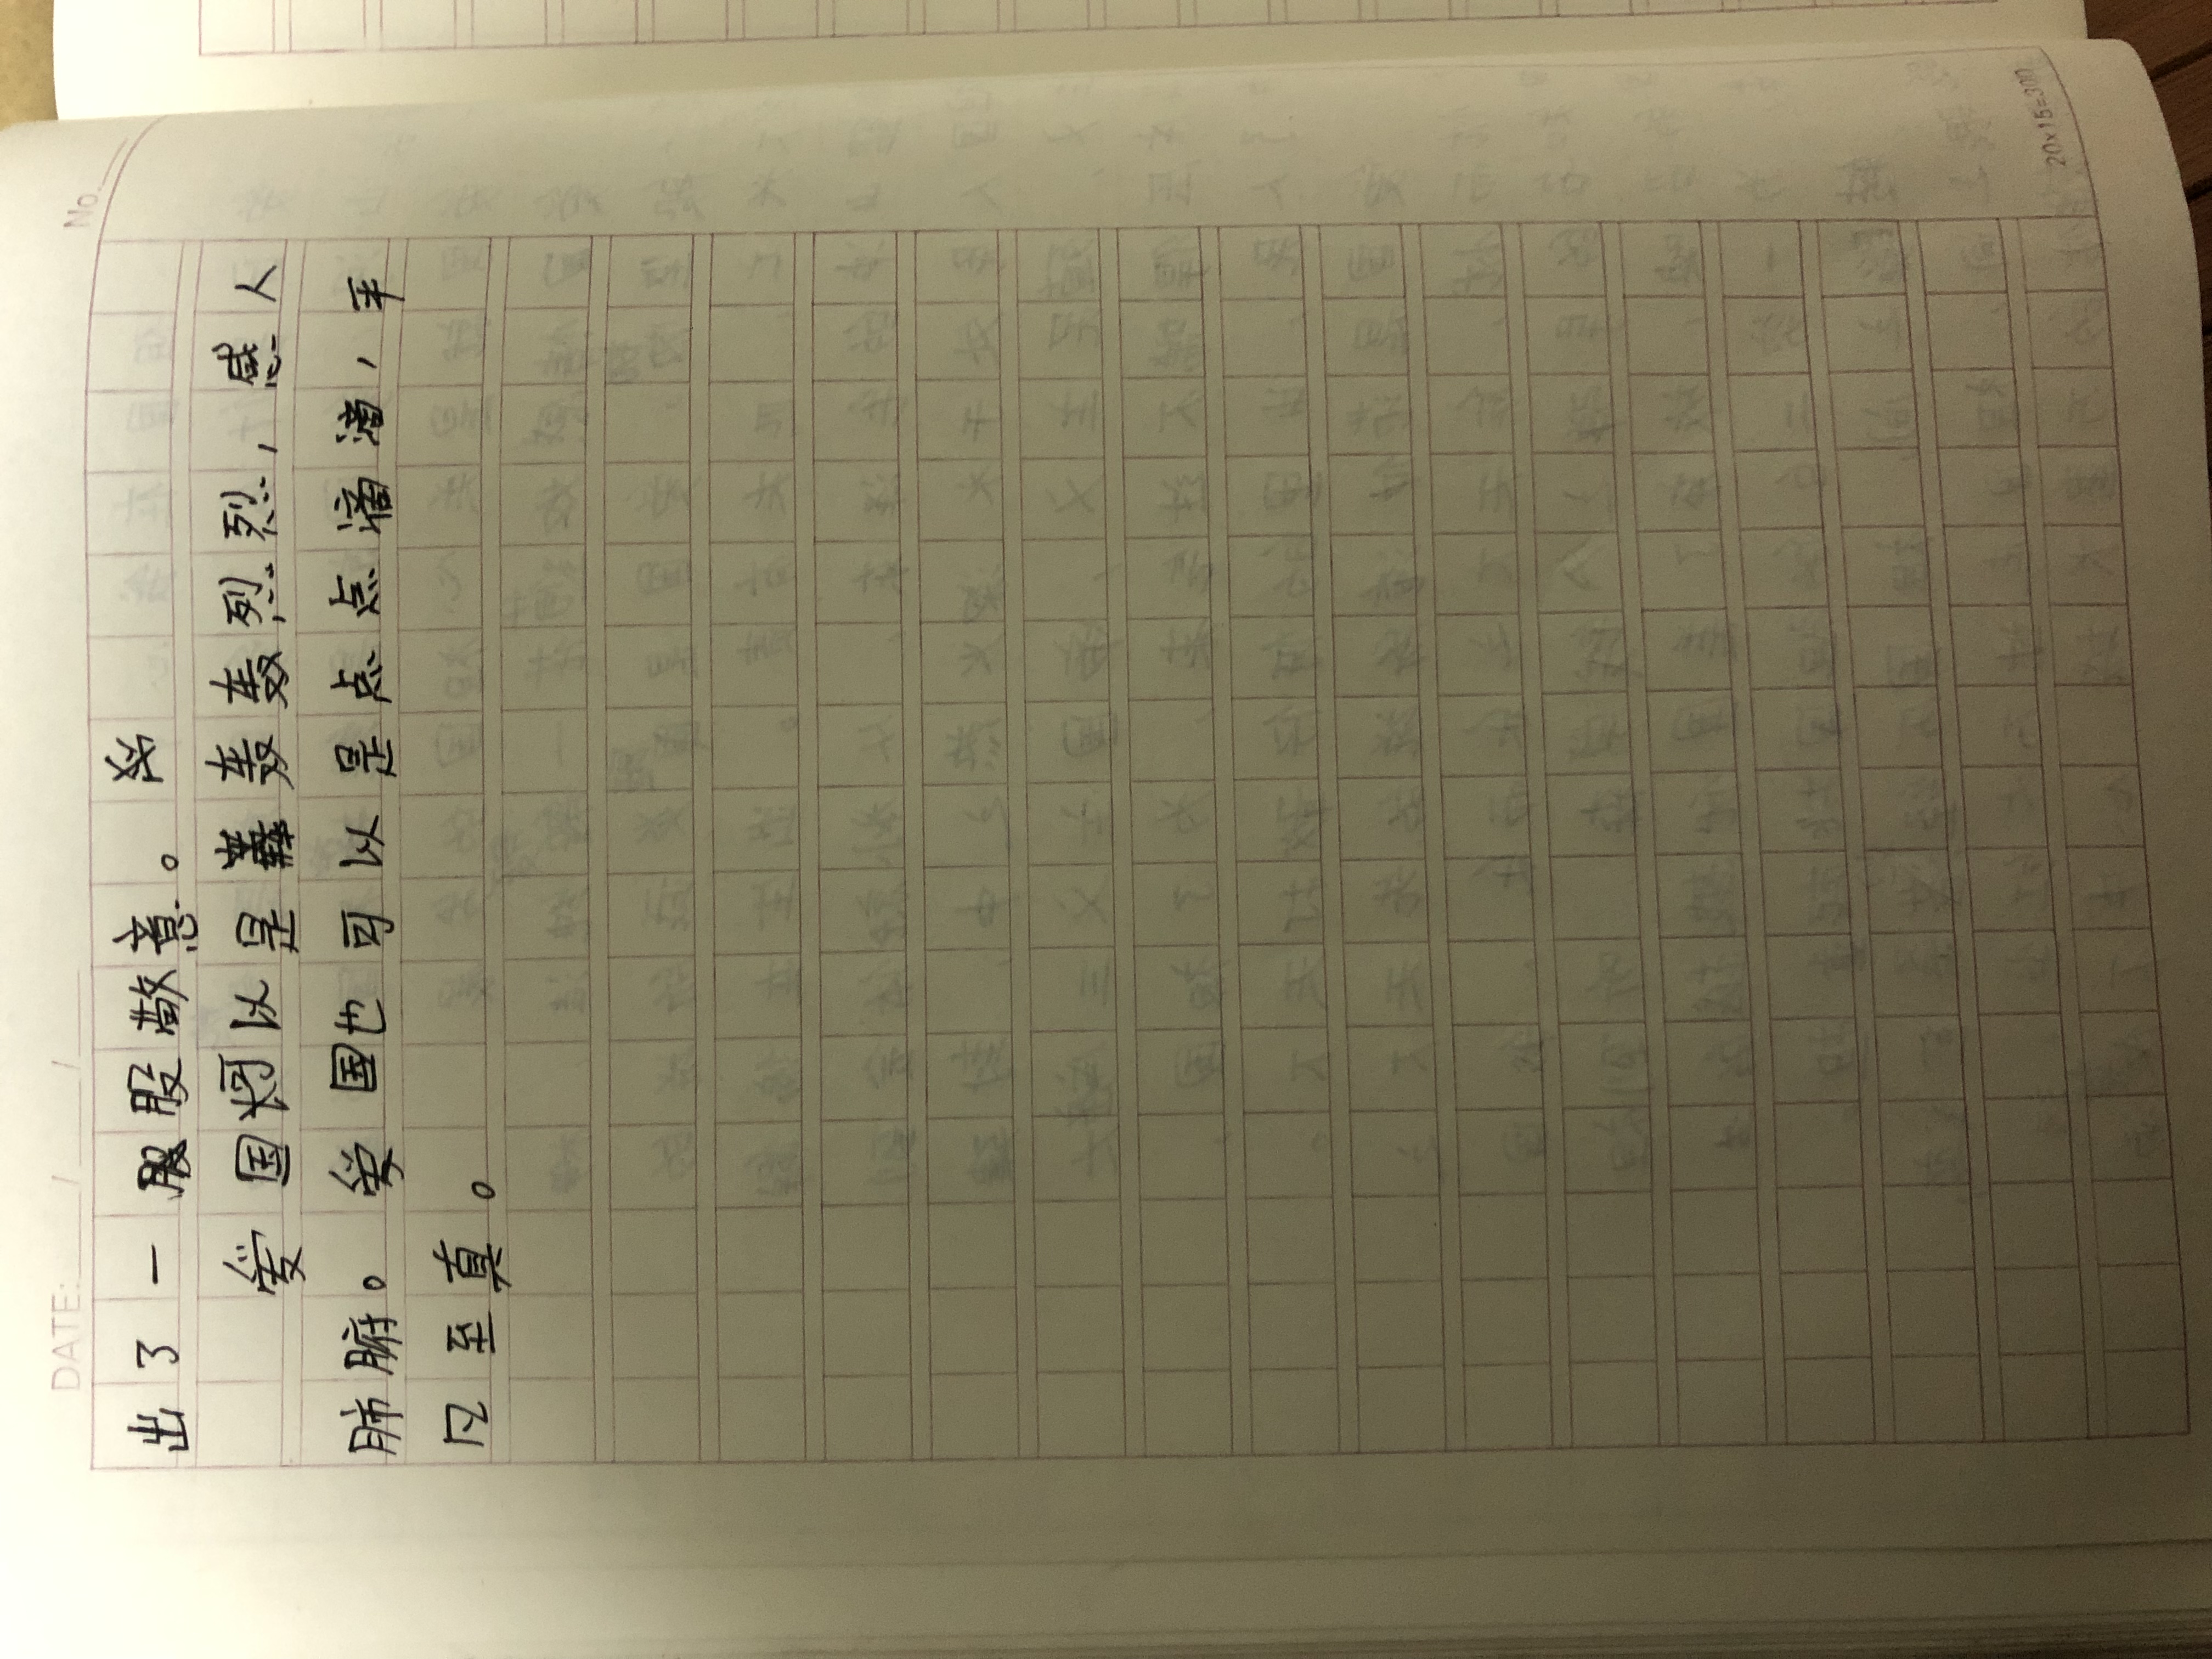 No.
DATE: / /
出了一股股敬意。
爱国可以是轰轰烈烈，感人
肺腑。爱国也可以是点点滴滴，平
凡至真。
20×15=300